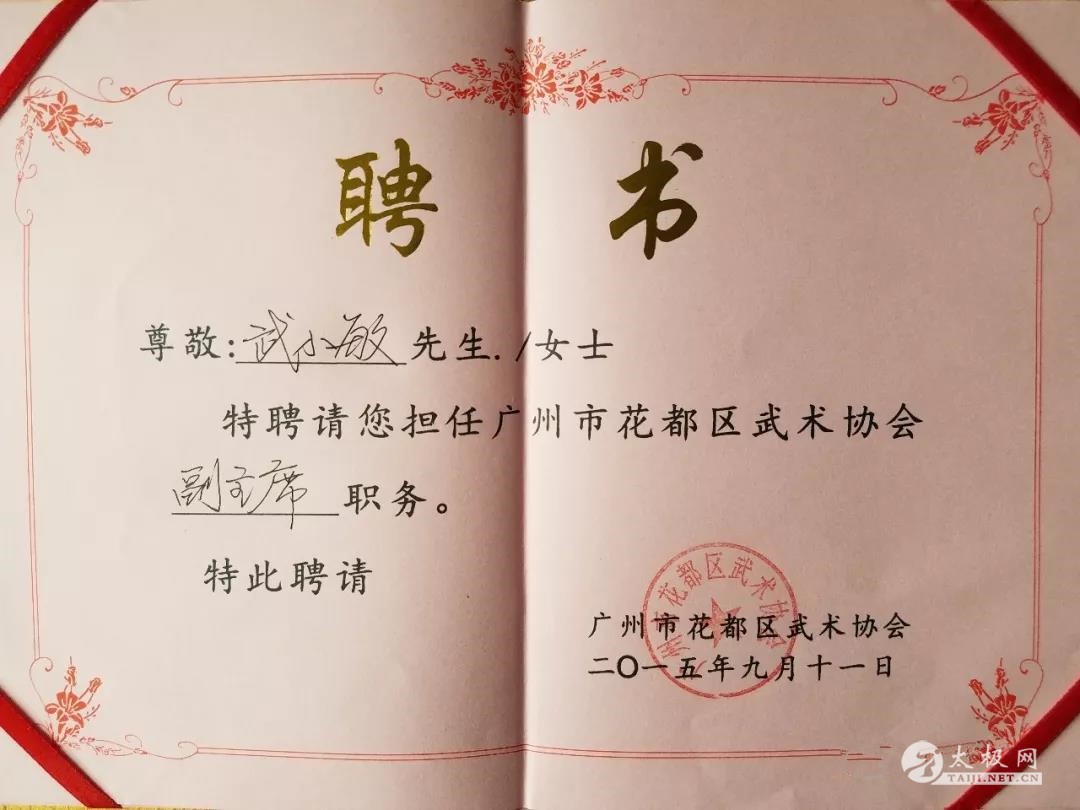 聘 书
尊敬:武小敏先生./女士
特聘请您担任广州市花都区武术协会
副主席职务。
特此聘请
广州市花都区武术协会
广州市花都区武术协会
二〇一五年九月十一日
太极网
TAIJI.NET.CN